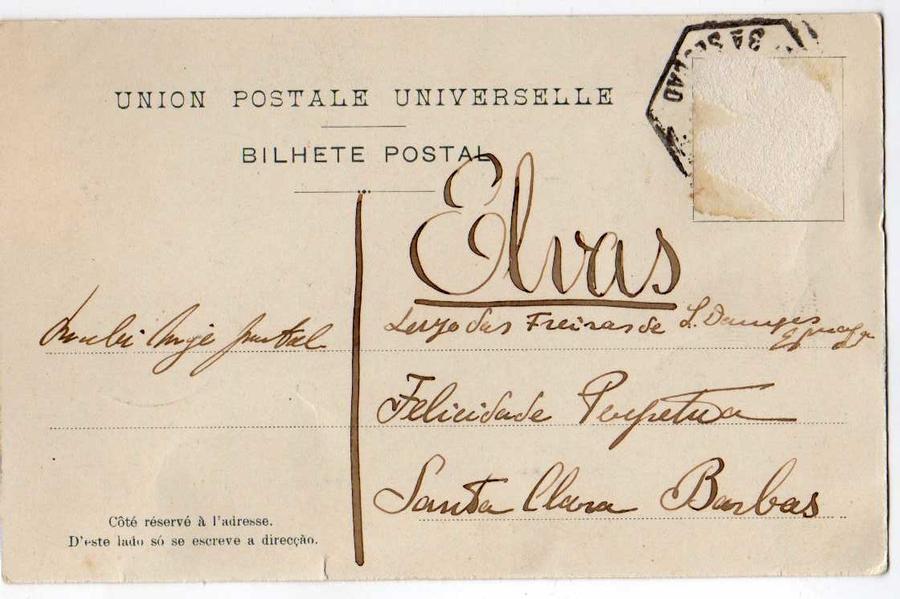 UNION POSTALE UNIVERSELLE
BILHETE POSTAL
3A SECÇÃO
Elvas
Largo das Freiras de S. Domingos
Recebi hoje postal
Felicidade Perpetua
Santa Clara Barbas
Côté réservé à l'adresse.
D'este lado só se escreve a direcção.